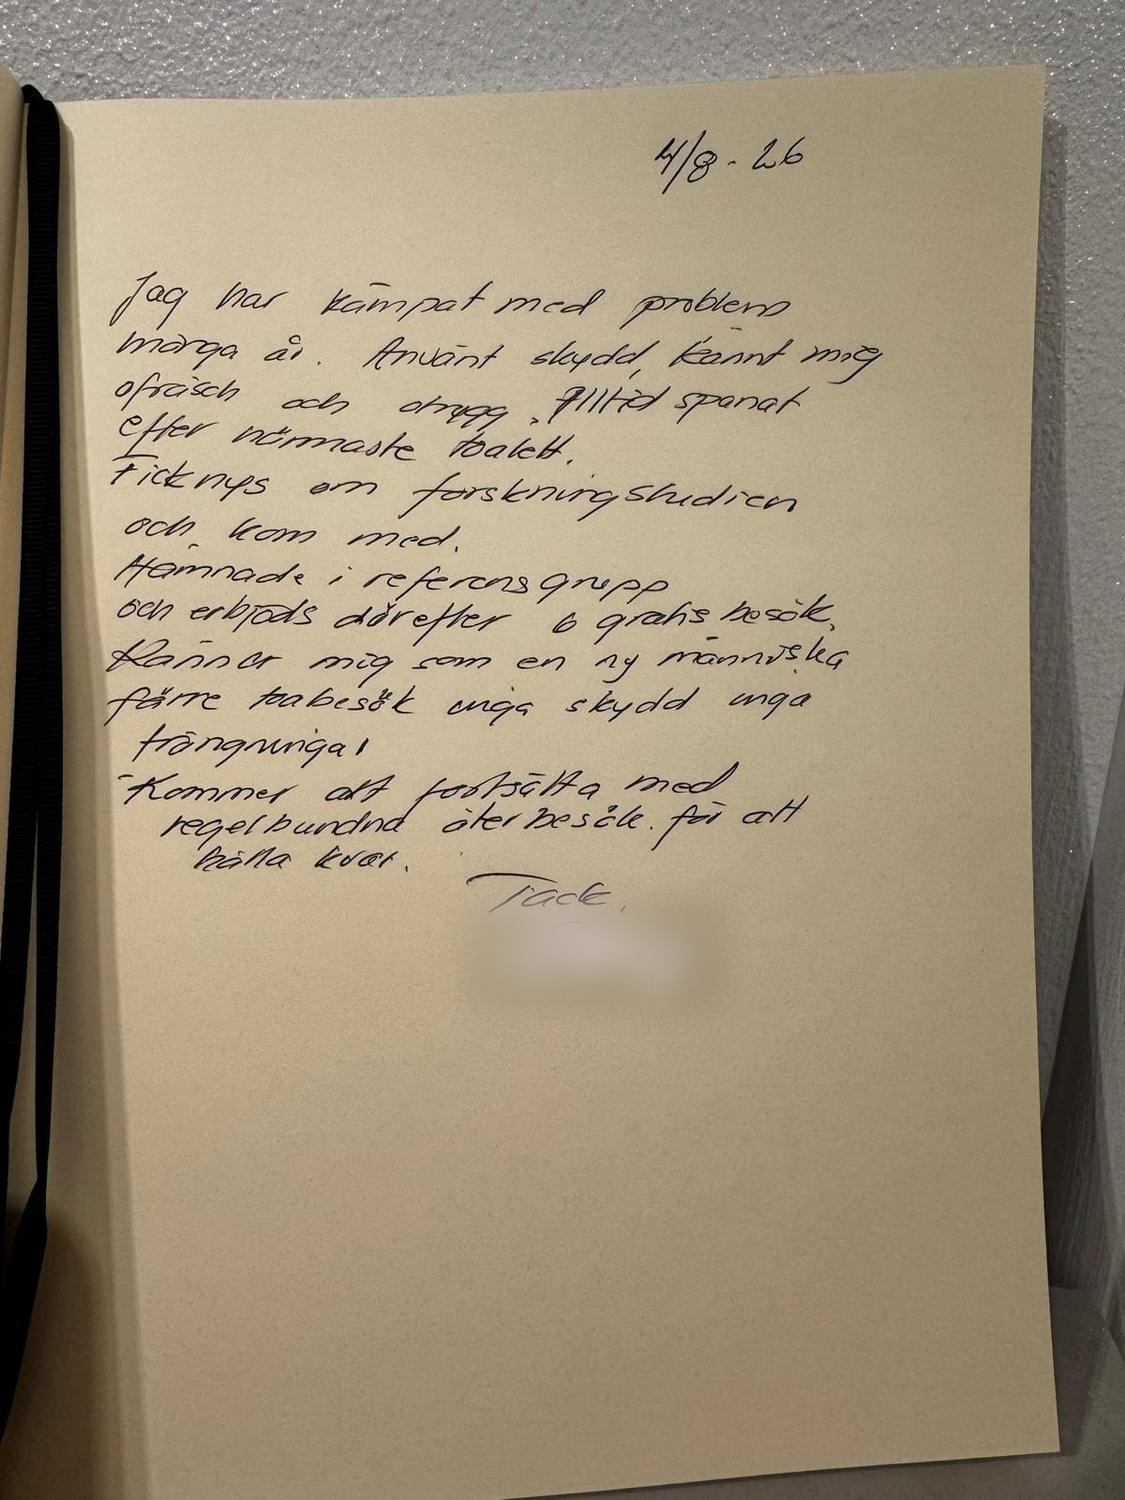 4/8 - 26
Jag har kämpat med problem
många år. Använt skydd, känt mig
ofräsch och otrygg. Alltid spanat
efter närmaste toalett.
Fick nys om forskningstudien
och kom med.
Hamnade i referensgrupp
och erbjöds därefter 6 gratis besök.
Känner mig som en ny människa
färre toabesök inga skydd inga
trängningar
Kommer att fortsätta med
regelbundna återbesök för att
hålla kvar.
Tack.